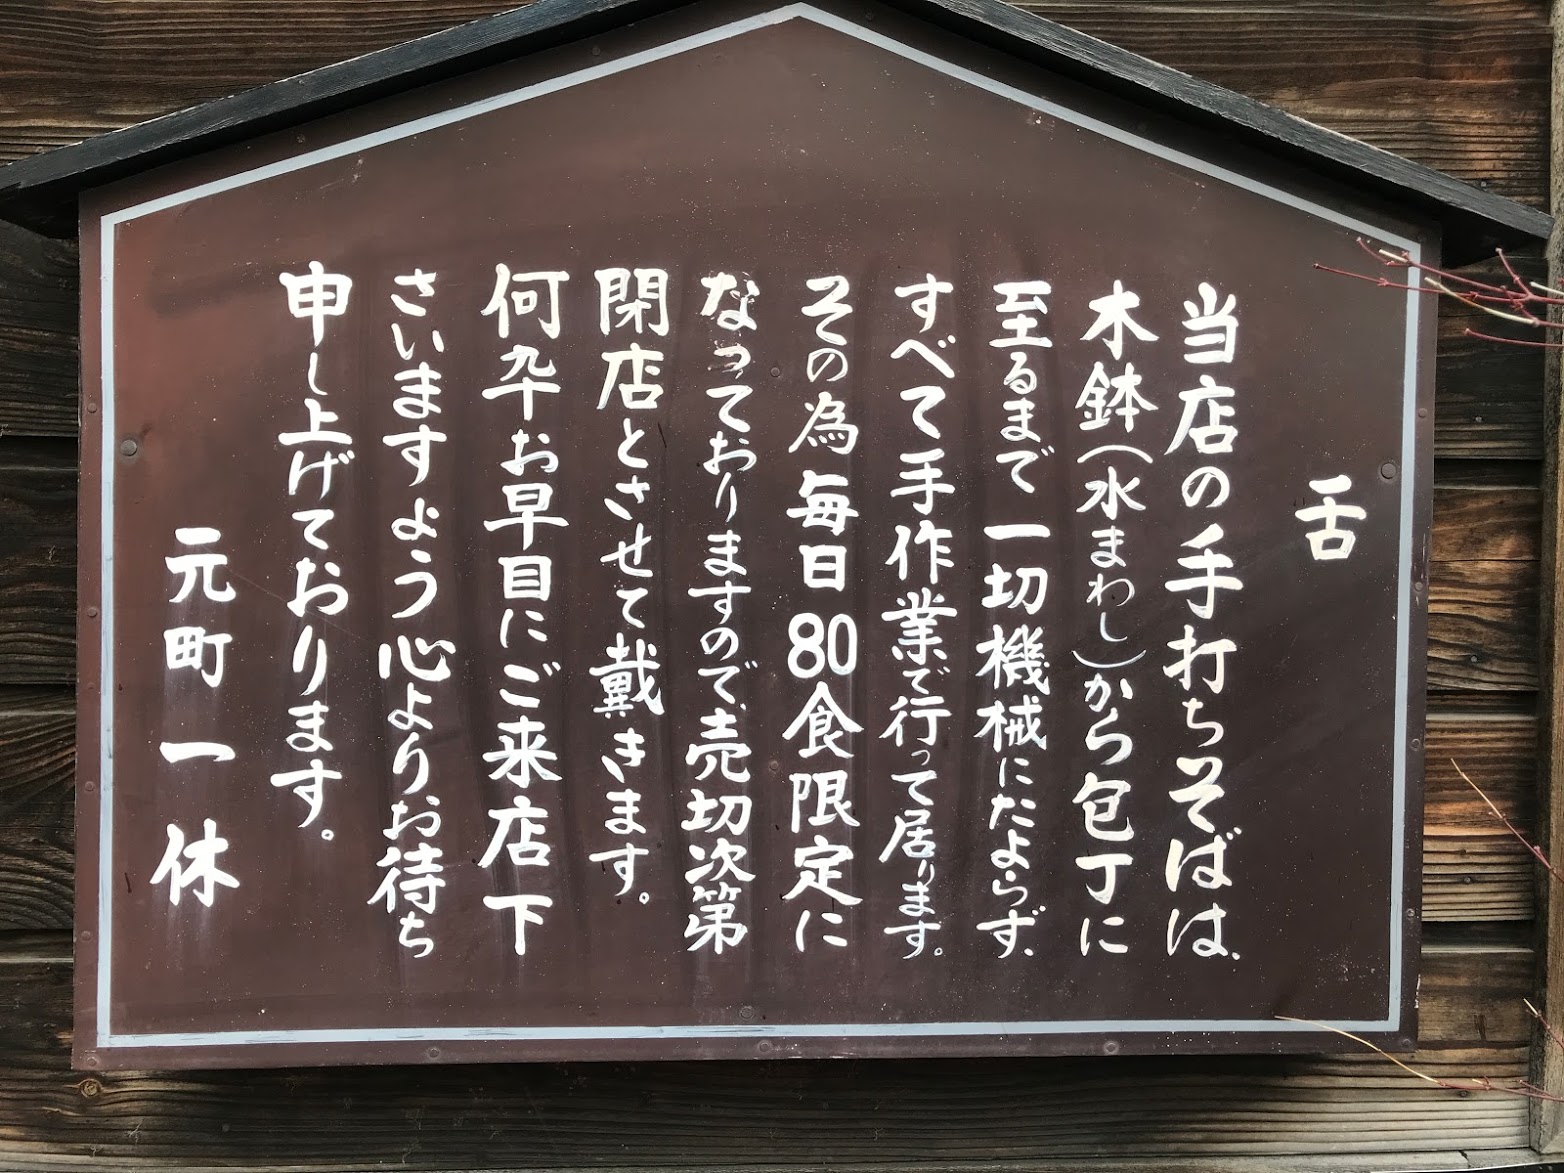 舌
当店の手打ちそばは、
木鉢(水まわし)から包丁に
至るまで一切機械にたよらず、
すべて手作業で行って居ります。
その為毎日80食限定に
なっておりますので、売切次第
閉店とさせて戴きます。
何卒お早目にご来店下
さいますよう心よりお待ち
申し上げております。
元町一休